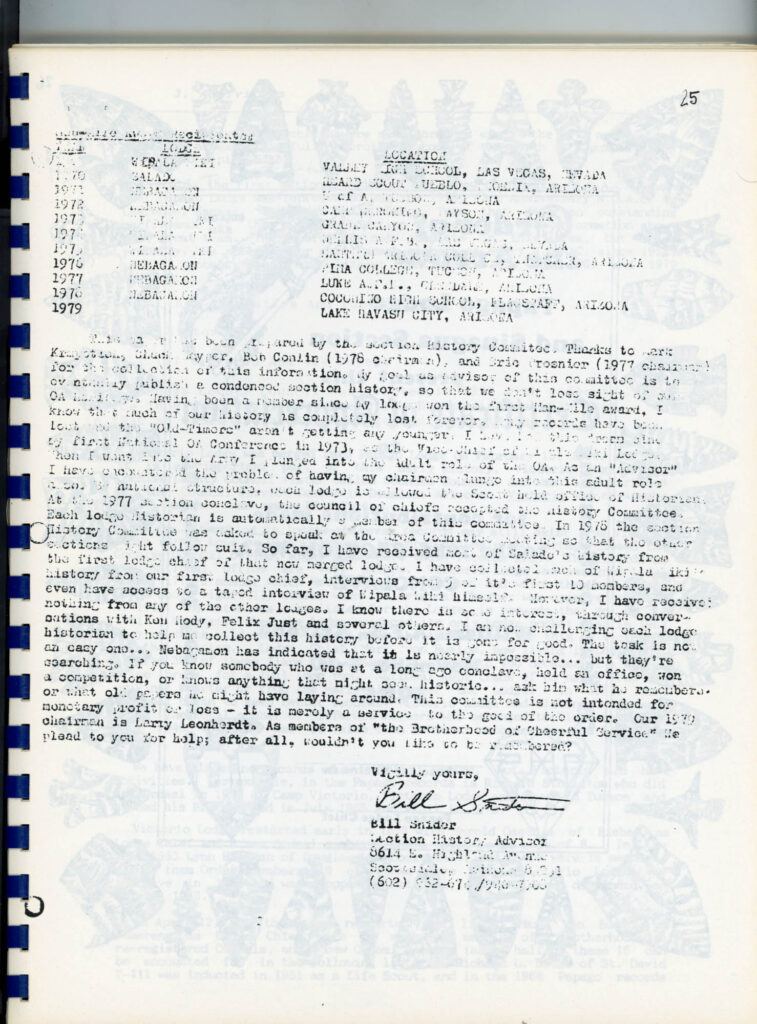 25
Recipients
LODGE LOCATION
WIPALA WIKI VALLEY HIGH SCHOOL, LAS VEGAS, NEVADA
1970 SALADO HEARD SCOUT PUEBLO, PHOENIX, ARIZONA
1971 NEBAGAMON U of A, TUCSON, ARIZONA
1972 NEBAGAMON CAMP GERONIMO, PAYSON, ARIZONA
1973 WIPALA WIKI GRAND CANYON, ARIZONA
1974 WIPALA WIKI NELLIS A.F.B., LAS VEGAS, NEVADA
1975 WIPALA WIKI EASTERN ARIZONA COLLEGE, THATCHER, ARIZONA
1976 NEBAGAMON PIMA COLLEGE, TUCSON, ARIZONA
1977 NEBAGAMON LUKE A.F.B., GLENDALE, ARIZONA
1978 NEBAGAMON COCONINO HIGH SCHOOL, FLAGSTAFF, ARIZONA
1979 LAKE HAVASU CITY, ARIZONA
This has been prepared by the section History Committee. Thanks to Mark
Chuck Bob Conlin (1978 chairman), and Eric (1977 chairman)
for the collection of this information. My goal as advisor of this committee is to
eventually publish a condensed section history, so that we don't lose sight of our
OA heritage. Having been a member since my lodge won the first Man-Mile award, I
know that much of our history is completely lost forever. Many records have been
lost and the "Old-Timers" aren't getting any younger. I this since
my first National OA Conference in 1973, as the Vice-Chief of Wipala Wiki Lodge.
Then I went into the Army I plunged into the adult role of the OA. As an "Advisor"
I have encountered the problem of having my chairmen plunge into this adult role
also. By national structure, each lodge is allowed the Scout held office of Historian.
At the 1977 section conclave, the council of chiefs accepted the History Committee.
Each lodge Historian is automatically a member of this committee. In 1978 the section
History Committee was asked to speak at the Area Committee meeting so that the other
sections might follow suit. So far, I have received most of Salado's history from
the first lodge chief of that now merged lodge. I have collected much of Wipala Wiki's
history from our first lodge chief, interviews from of it's first 10 members, and
even have access to a taped interview of Wipala Wiki himself. However, I have received
nothing from any of the other lodges. I know there is some interest, through conver-
sations with Ken Hody, Felix Just and several others. I am now challenging each lodge
historian to help me collect this history before it is gone for good. The task is not
an easy one... Nebagamon has indicated that it is nearly impossible... but they're
searching. If you know somebody who was at a long ago conclave, held an office, won
a competition, or knows anything that might seem historic... ask him what he remembers.
or what old papers he might have laying around. This committee is not intended for
monetary profit or loss - it is merely a service to the good of the order. Our 1979
chairman is Larry Leonhardt. As members of "the Brotherhood of Cheerful Service" We
plead to you for help; after all, wouldn't you like to be remembered?
Vigilly yours,
Bill Snider
Bill Snider
Section History Advisor
8614 E. Highland Avenue
Scottsdale, Arizona
(602)